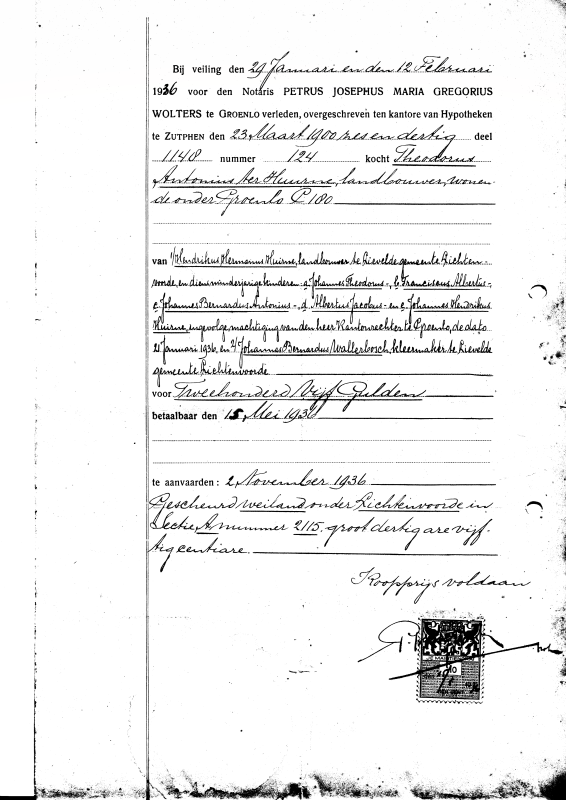 Bij veiling den 29 Januari en den 12 Februari
1936 voor den Notaris PETRUS JOSEPHUS MARIA GREGORIUS
WOLTERS te GROENLO verleden, overgeschreven ten kantore van Hypotheken
te ZUTPHEN den 23 Maart 1900 zes en dertig deel
1148 nummer 124 kocht Theodorus
Antonius ter Huurne, landbouwer, wonen-
de onder Groenlo C 180
van 1/ Hendrikus Hermanus Huirne, landbouwer te Lievelde gemeente Lichten-
voorde, en diens minderjarige kinderen a. Johannes Theodorus -, b. Franciscus Albertus -
c. Johannes Bernardus Antonius -, d. Albertus Jacobus - en e. Johannes Hendrikus
Huirne, ingevolge machtiging van den heer Kantonrechter te Groenlo, de dato
21 Januari 1936, en 2/ Johannes Bernardus Wallerbosch, kleermaker te Lievelde
gemeente Lichtenvoorde
voor Tweehonderd Vijf Gulden
betaalbaar den 15 Mei 1936
te aanvaarden: 2 November 1936
Gescheurd weiland onder Lichtenvoorde in
Sectie A nummer 2115. groot dertig are vijf-
tig centiare.
Koopprijs voldaan